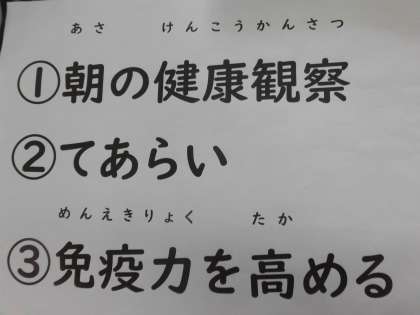 あさ けんこうかんさつ
①朝の健康観察
②てあらい
めんえきりょく たか
③免疫力を高める